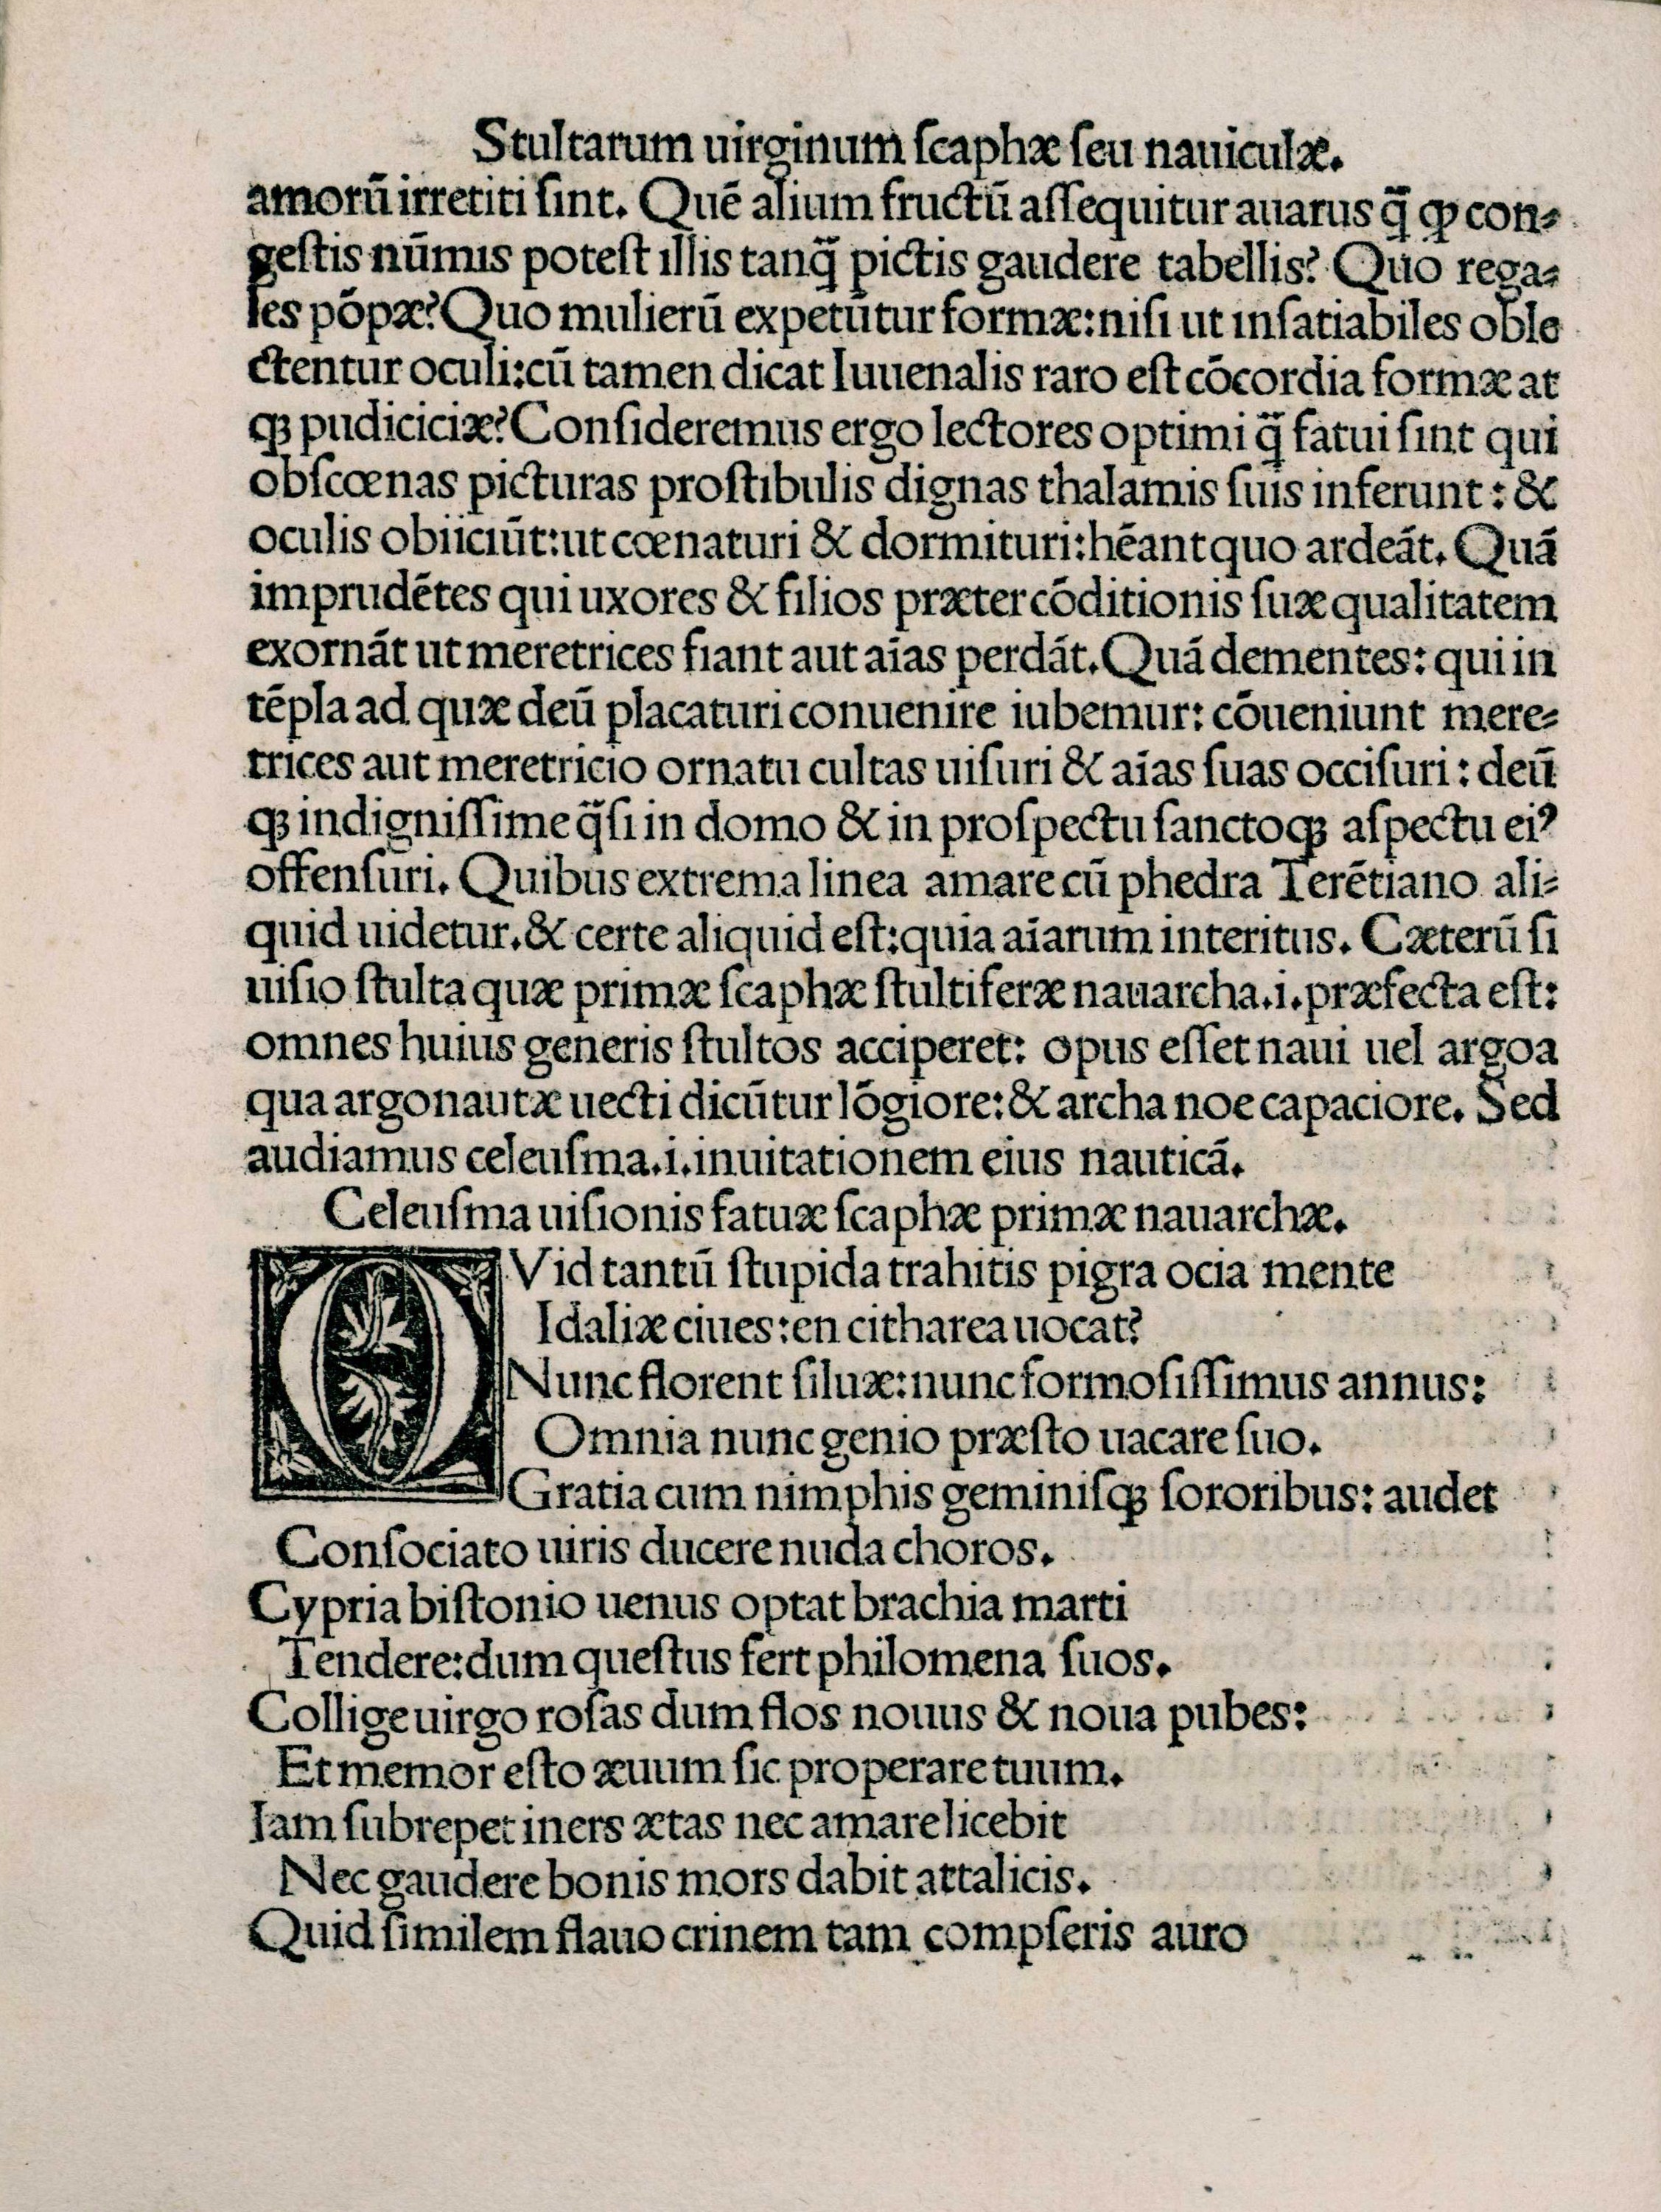 Stultarum uirginum ſcaphæ ſeu nauiculæ.
amorū irretiti ſint. Quē alium fructū aſſequitur auarus q̄ ꝙ con⸗
geſtis nūmis poteſt illis tanq̄ pictis gaudere tabellis? Quo rega⸗
les pōpæ? Quo mulierū expetūtur formæ: niſi ut inſatiabiles oble
ctentur oculi: cū tamen dicat Iuuenalis raro eſt cōcordia formæ at
qꝫ pudiciciæ? Conſideremus ergo lectores optimi q̄ fatui ſint qui
obſcœnas picturas proſtibulis dignas thalamis ſuis inferunt: &
oculis obiiciūt: ut cœnaturi & dormituri: hēant quo ardeāt. Quā
imprudētes qui uxores & filios præter cōditionis ſuæ qualitatem
exornāt ut meretrices fiant aut aīas perdāt. Quā dementes: qui in
tēpla ad quæ deū placaturi conuenire iubemur: cōueniunt mere⸗
trices aut meretricio ornatu cultas uiſuri & aīas ſuas occiſuri: deū
qꝫ indigniſſime q̄ſi in domo & in proſpectu ſanctoqꝫ aſpectu eiꝰ
offenſuri. Quibus extrema linea amare cū phedra Terētiano ali⸗
quid uidetur. & certe aliquid eſt: quia aīarum interitus. Cæterū ſi
uiſio ſtulta quæ primæ ſcaphæ ſtultiferæ nauarcha .i. præfecta eſt:
omnes huius generis ſtultos acciperet: opus eſſet naui uel argoa
qua argonautæ uecti dicūtur lōgiore: & archa noe capaciore. Sed
audiamus celeuſma .i. inuitationem eius nauticā.
Celeuſma uiſionis fatuæ ſcaphæ primæ nauarchæ.
QVid tantū ſtupida trahitis pigra ocia mente
Idaliæ ciues: en citharea uocat?
Nunc florent ſiluæ: nunc formoſiſſimus annus:
Omnia nunc genio præſto uacare ſuo.
Gratia cum nimphis geminiſqꝫ ſororibus: audet
Conſociato uiris ducere nuda choros.
Cypria biſtonio uenus optat brachia marti
Tendere: dum queſtus fert philomena ſuos.
Collige uirgo roſas dum flos nouus & noua pubes:
Et memor eſto æuum ſic properare tuum.
Iam ſubrepet iners ætas nec amare licebit
Nec gaudere bonis mors dabit attalicis.
Quid ſimilem flauo crinem tam compſeris auro